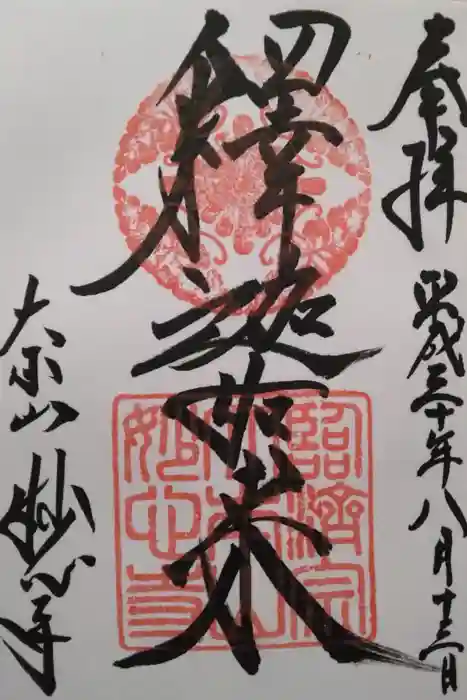 奉拝
平成三十年八月十三日
釋迦如来
大本山妙心寺
臨済宗
大本山
妙心寺